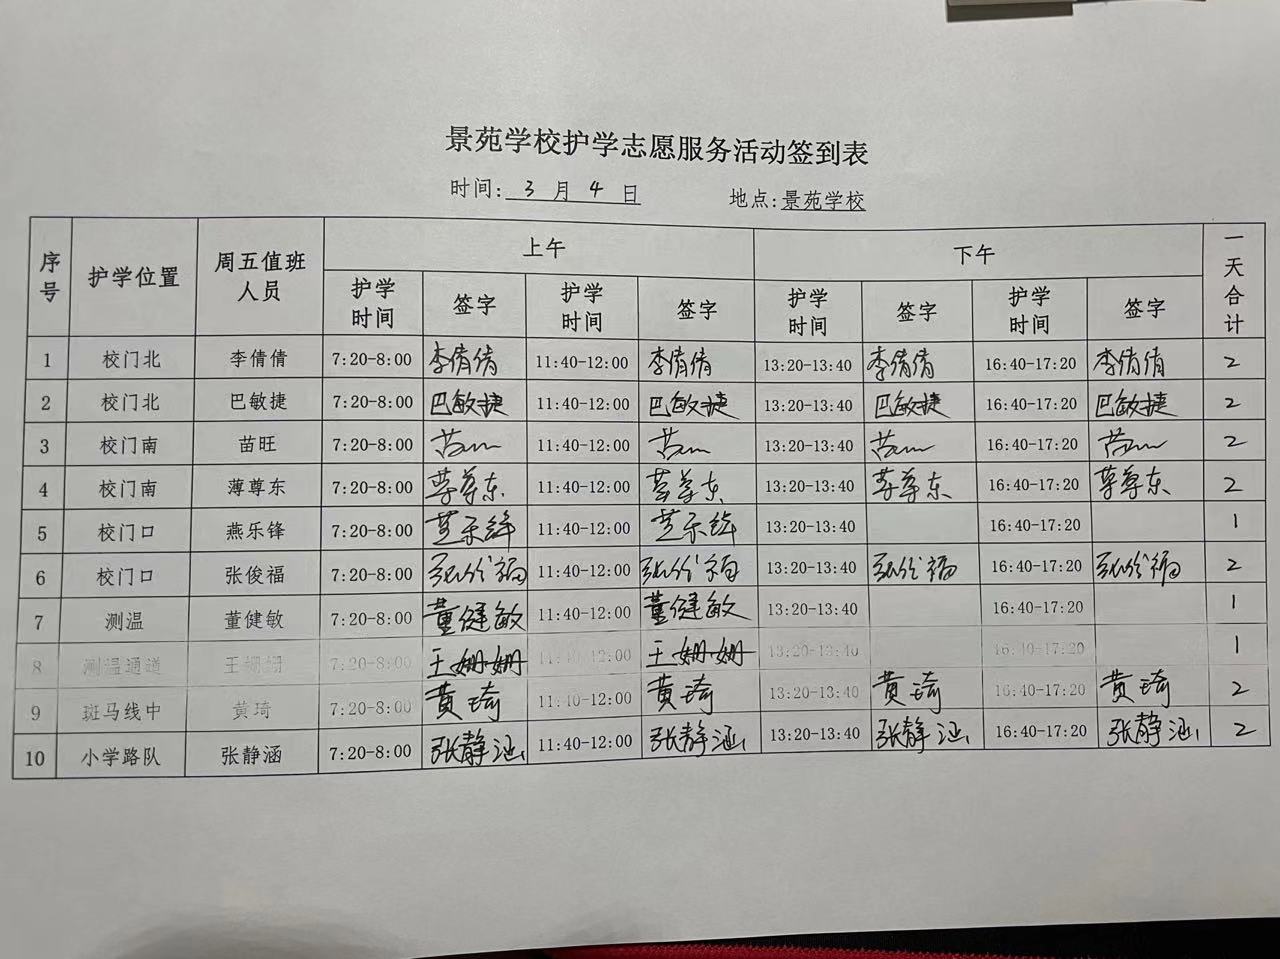 景苑学校护学志愿服务活动签到表
时间: 3 月 4 日 地点:景苑学校
序号 护学位置 周五值班人员 上午 下午 一天合计
护学时间 签字 护学时间 签字 护学时间 签字 护学时间 签字
1 校门北 李倩倩 7:20-8:00 李倩倩 11:40-12:00 李倩倩 13:20-13:40 李倩倩 16:40-17:20 李倩倩 2
2 校门北 巴敏捷 7:20-8:00 巴敏捷 11:40-12:00 巴敏捷 13:20-13:40 巴敏捷 16:40-17:20 巴敏捷 2
3 校门南 苗旺 7:20-8:00 苗 11:40-12:00 苗 13:20-13:40 苗 16:40-17:20 苗 2
4 校门南 薄尊东 7:20-8:00 尊东 11:40-12:00 尊东 13:20-13:40 尊东 16:40-17:20 尊东 2
5 校门口 燕乐锋 7:20-8:00 乐锋 11:40-12:00 乐锋 13:20-13:40 16:40-17:20 1
6 校门口 张俊福 7:20-8:00 张俊福 11:40-12:00 张俊福 13:20-13:40 张俊福 16:40-17:20 张俊福 2
7 测温 董健敏 7:20-8:00 董健敏 11:40-12:00 董健敏 13:20-13:40 16:40-17:20 1
8 测温通道 王姗姗 7:20-8:00 王姗姗 11:40-12:00 王姗姗 13:20-13:40 16:40-17:20 1
9 斑马线中 黄琦 7:20-8:00 黄琦 11:40-12:00 黄琦 13:20-13:40 黄琦 16:40-17:20 黄琦 2
10 小学路队 张静涵 7:20-8:00 张静涵 11:40-12:00 张静涵 13:20-13:40 张静涵 16:40-17:20 张静涵 2